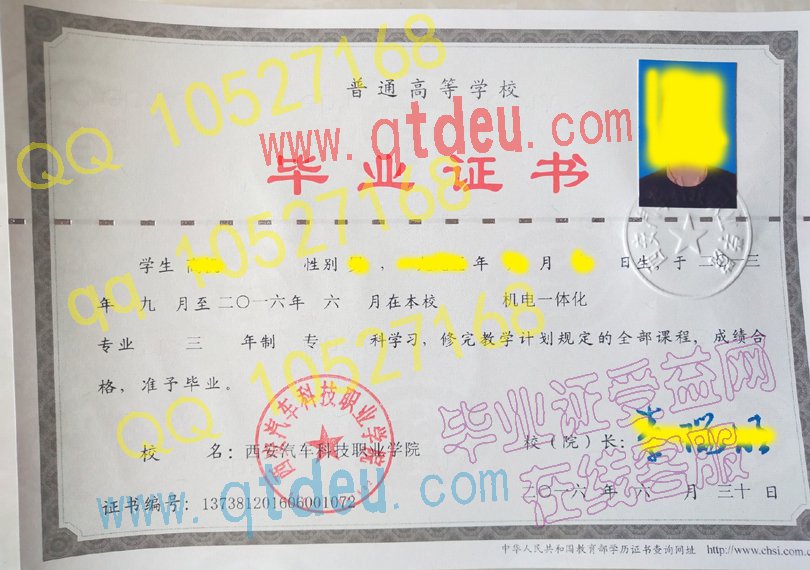 普通高等学校
QQ 10527168
www.qtdeu.com
毕业证书
qq 10527168
学生 性别 , 年 月 日生，于 二 三
年 九 月至 二〇一六年 六 月在本校 机电一体化
专业 三 年制 专 科学习，修完教学计划规定的全部课程，成绩合
格，准予毕业。
QQ 10527168
毕业证受益网
在线客服
西安汽车科技职业学院
校 名：西安汽车科技职业学院
校（院）长：
www.qtdeu.com
二〇一六 年 六 月 三十 日
证书编号：137381201606001072
中华人民共和国教育部学历证书查询网址 http://www.chsi.com.c